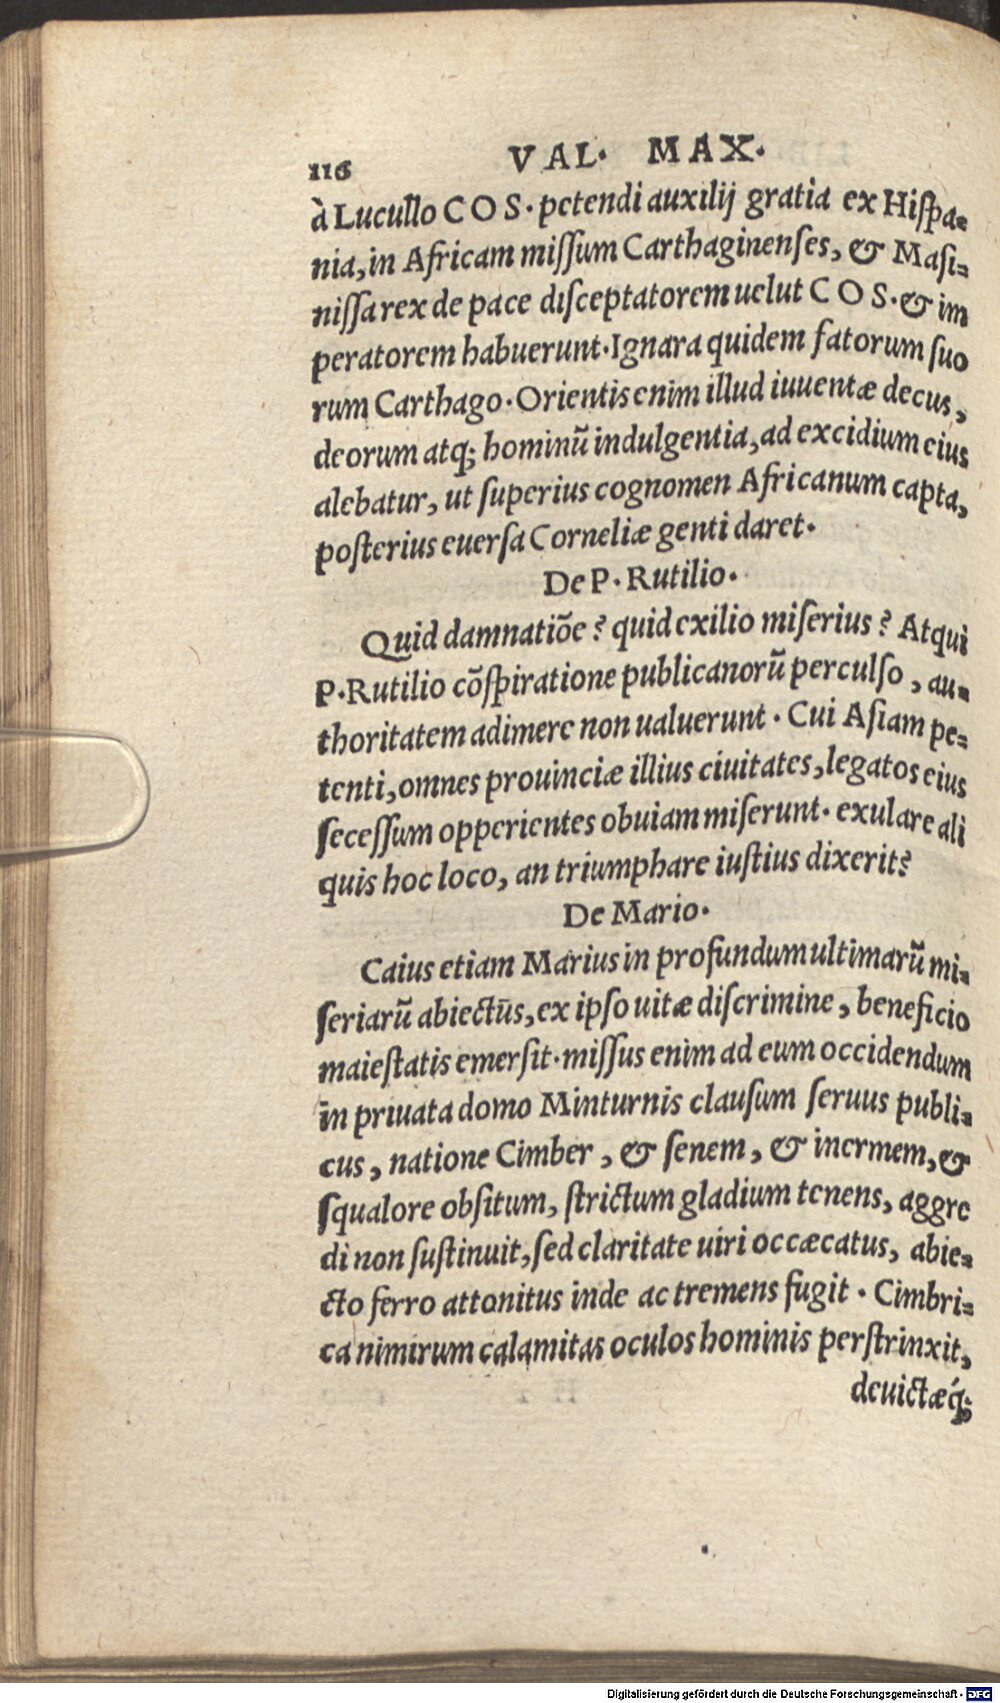 116 VAL. MAX.
à Lucullo COS. petendi auxilij gratia ex Hispa-
nia, in Africam missum Carthaginenses, & Masi-
nissa rex de pace disceptatorem uelut COS. & im
peratorem habuerunt. Ignara quidem fatorum suo
rum Carthago. Orientis enim illud iuuentæ decus,
deorum atq; hominū indulgentia, ad excidium eius
alebatur, ut superius cognomen Africanum capta,
posterius euersa Corneliæ genti daret.
De P. Rutilio.
Quid damnatiōe? quid exilio miserius? Atqui
P. Rutilio cōspiratione publicanorū perculso, au-
thoritatem adimere non ualuerunt. Cui Asiam pe-
tenti, omnes prouinciæ illius ciuitates, legatos eius
secessum opperientes obuiam miserunt. exulare ali
quis hoc loco, an triumphare iustius dixerit?
De Mario.
Caius etiam Marius in profundum ultimarū mi-
seriarū abiectūs, ex ipso uitæ discrimine, beneficio
maiestatis emersit. missus enim ad eum occidendum
in priuata domo Minturnis clausum seruus publi-
cus, natione Cimber, & senem, & inermem, &
squalore obsitum, strictum gladium tenens, aggre
di non sustinuit, sed claritate uiri occæcatus, abie-
cto ferro attonitus inde ac tremens fugit. Cimbri-
ca nimirum calamitas oculos hominis perstrinxit,
deuictæq́;
Digitalisierung gefördert durch die Deutsche Forschungsgemeinschaft - DFG